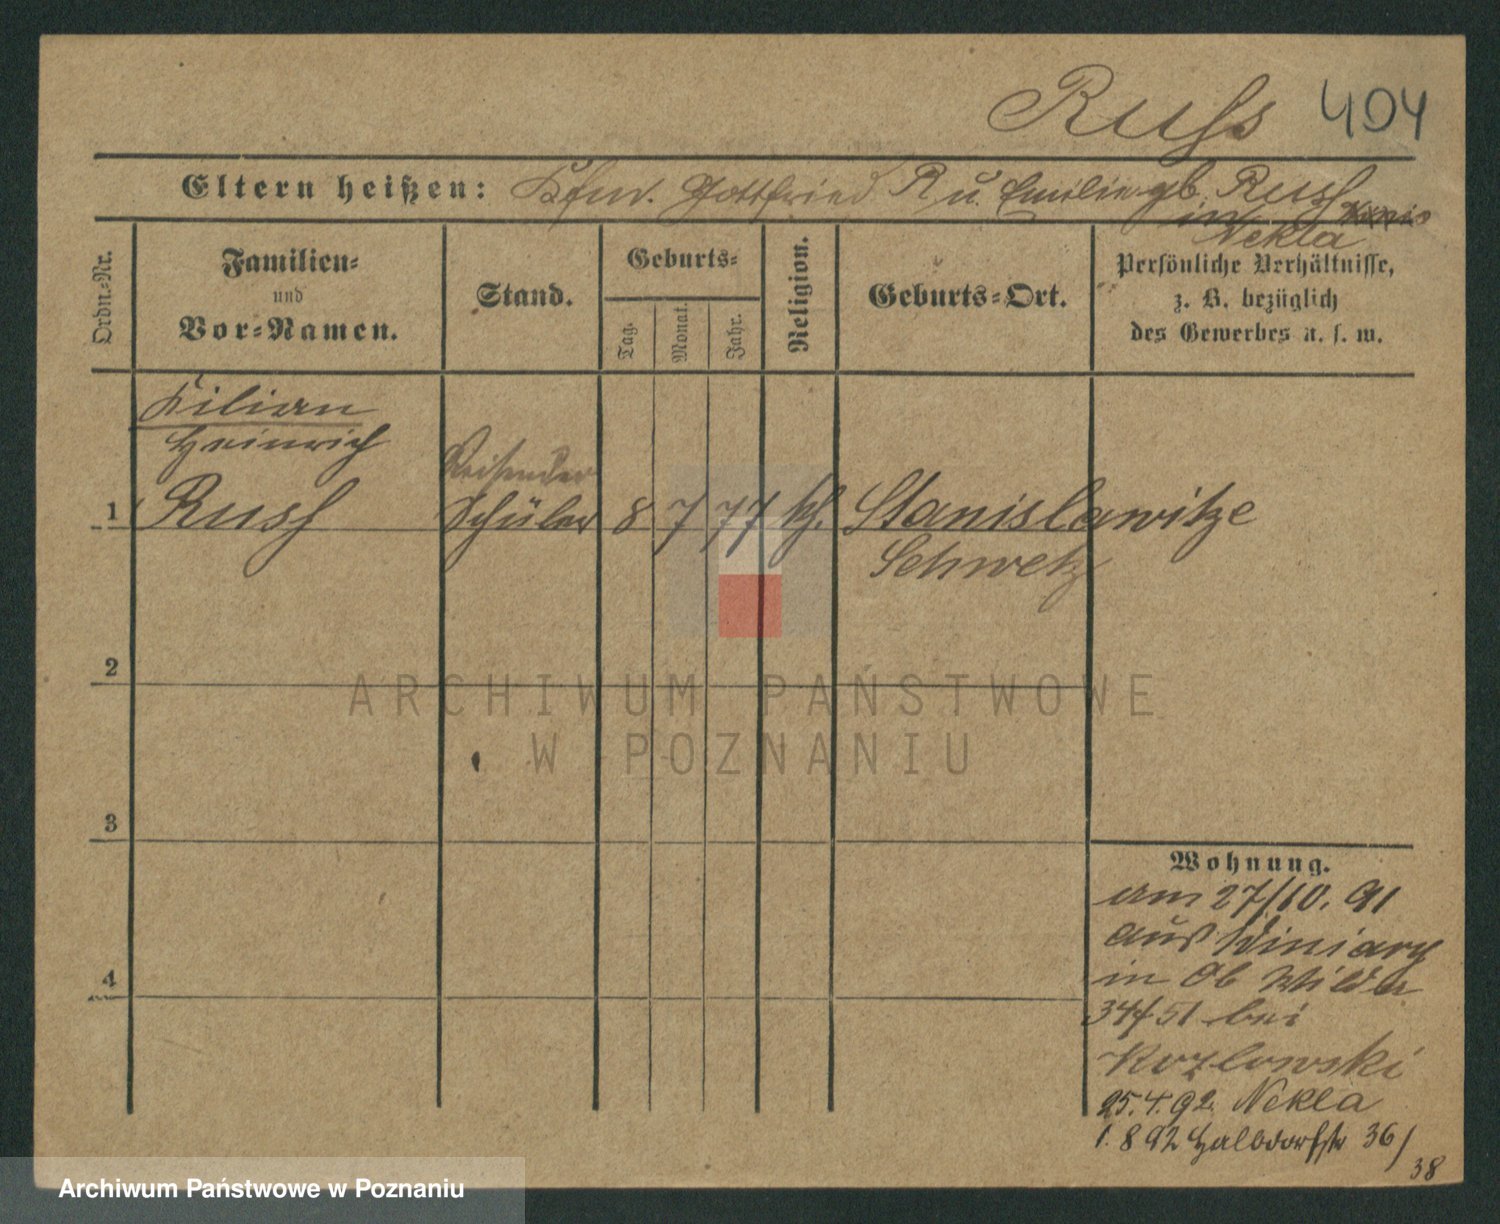 Russ 404
Eltern heißen: Kfm. Gottfried R u. Emilie gb. Russ
in
Nekla
Ordn.-Nr.
Familien-
und
Vor-Namen.
Stand.
Geburts-
Tag.
Monat.
Jahr.
Religion.
Geburts-Ort.
Persönliche Verhältnisse,
z. B. bezüglich
des Gewerbes u. s. w.
Kilian
Heinrich
Reisender
1 Russ Schüler 8 7 77 kh. Stanislawitze
Schwetz
2
3
4
Wohnung.
am 27/10. 91
aus Winiary
in Ob Wilda
34/51 bei
Kozlowski
25.4.92 Nekla
1. 8 92 Halbdorfstr 36/
38
ARCHIWUM PAŃSTWOWE
W POZNANIU
Archiwum Państwowe w Poznaniu